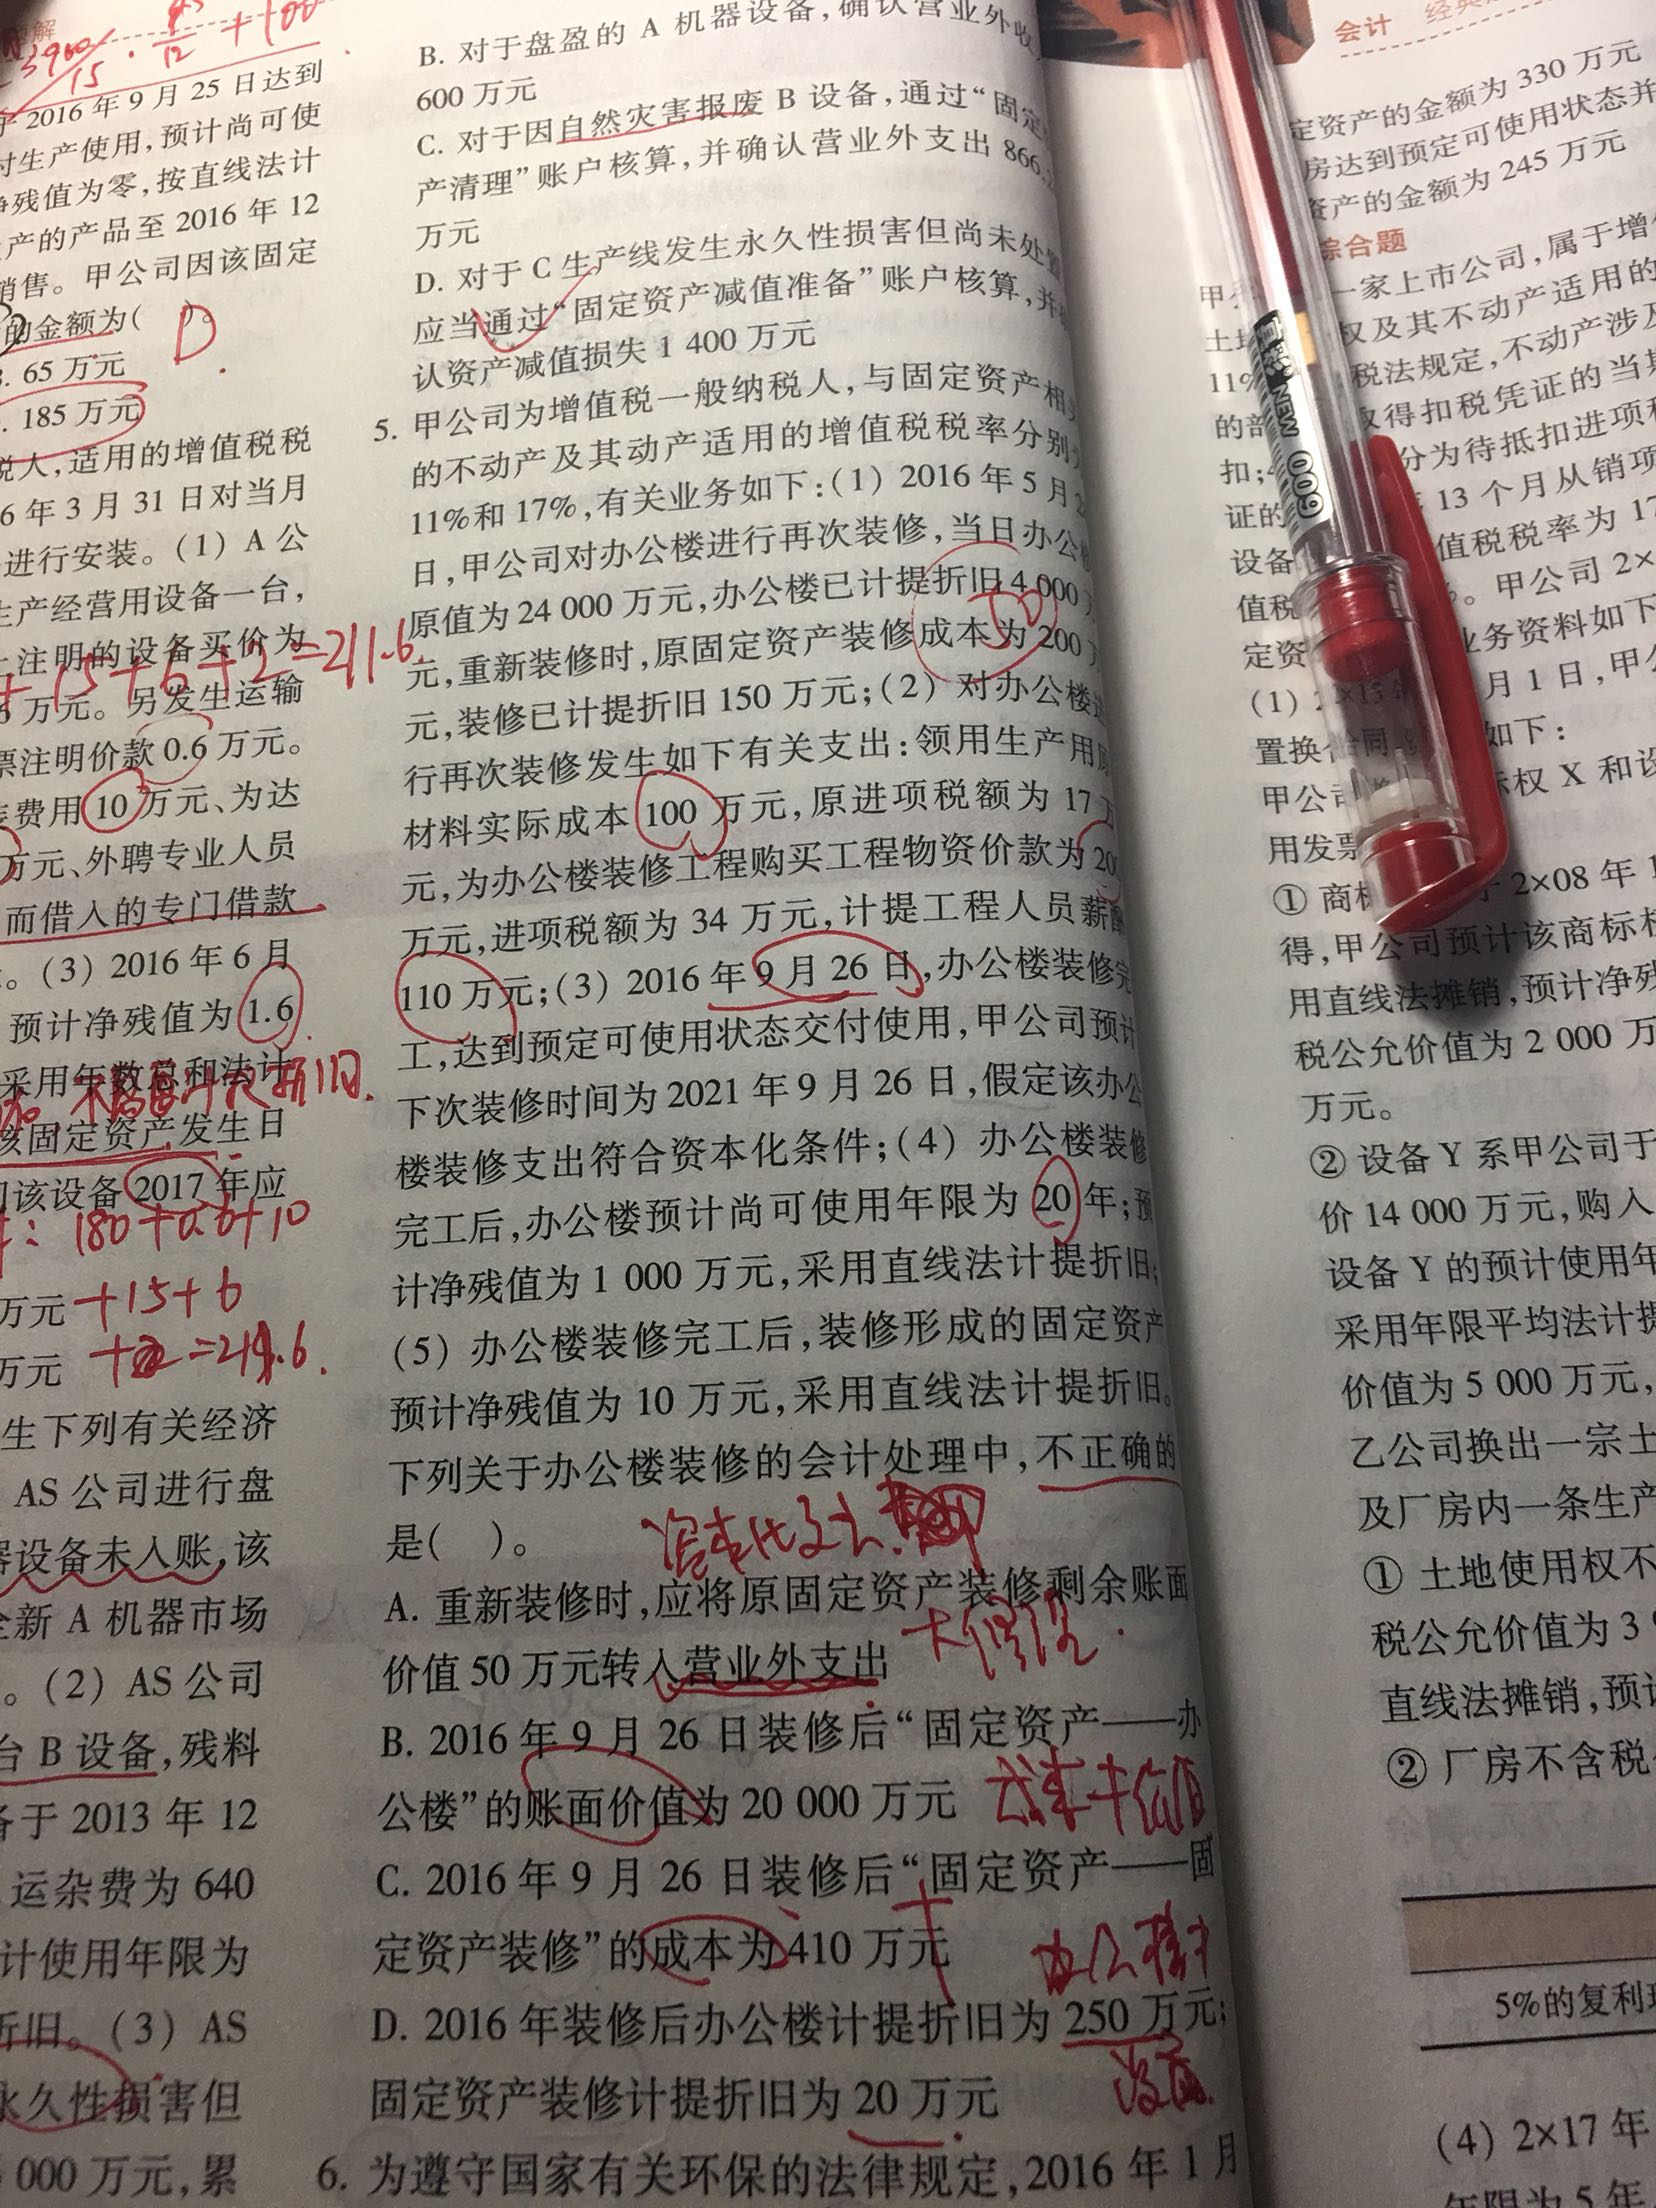 题解
于 2016 年 9 月 25 日达到
付生产使用,预计尚可使
净残值为零,按直线法计
产的产品至 2016 年 12
销售。甲公司因该固定
的金额为(　)。
D
65 万元
185 万元
税人,适用的增值税税
6 年 3 月 31 日对当月
进行安装。(1) A 公
生产经营用设备一台,
注明的设备买价为
+15+6+2=211.6
万元。另发生运输
票注明价款 0.6 万元。
费用 10 万元、为达
万元、外聘专业人员
而借入的专门借款
。(3) 2016 年 6 月
预计净残值为 1.6
采用年数总和法计
该固定资产发生日
该设备 2017 年应
180+0.6+10
万元 +15+6
万元
生下列有关经济
AS 公司进行盘
器设备未入账,该
全新 A 机器市场
。(2) AS 公司
台 B 设备,残料
备于 2013 年 12
运杂费为 640
计使用年限为
折旧。(3) AS
永久性损害但
000 万元,累
B. 对于盘盈的 A 机器设备,确认营业外收
600 万元
C. 对于因自然灾害报废 B 设备,通过“固定
产清理”账户核算,并确认营业外支出 866.
万元
D. 对于 C 生产线发生永久性损害但尚未处
应当通过“固定资产减值准备”账户核算,并
认资产减值损失 1 400 万元
5. 甲公司为增值税一般纳税人,与固定资产相
的不动产及其动产适用的增值税税率分别
11%和 17%,有关业务如下:(1) 2016 年 5 月
日,甲公司对办公楼进行再次装修,当日办公
原值为 24 000 万元,办公楼已计提折旧 4 000
50
元,重新装修时,原固定资产装修成本为 200
元,装修已计提折旧 150 万元;(2) 对办公楼
行再次装修发生如下有关支出:领用生产用
材料实际成本 100 万元,原进项税额为 17
元,为办公楼装修工程购买工程物资价款为 200
万元,进项税额为 34 万元,计提工程人员薪酬
110 万元;(3) 2016 年 9 月 26 日,办公楼装修完
工,达到预定可使用状态交付使用,甲公司预计
下次装修时间为 2021 年 9 月 26 日,假定该办公
楼装修支出符合资本化条件;(4) 办公楼装修
完工后,办公楼预计尚可使用年限为 20 年;预
计净残值为 1 000 万元,采用直线法计提折旧;
(5) 办公楼装修完工后,装修形成的固定资产
预计净残值为 10 万元,采用直线法计提折旧。
下列关于办公楼装修的会计处理中,不正确的
是(　)。
A. 重新装修时,应将原固定资产装修剩余账面
价值 50 万元转入营业外支出
B. 2016 年 9 月 26 日装修后“固定资产——办
公楼”的账面价值为 20 000 万元
C. 2016 年 9 月 26 日装修后“固定资产——固
定资产装修”的成本为 410 万元
D. 2016 年装修后办公楼计提折旧为 250 万元;
固定资产装修计提折旧为 20 万元
6. 为遵守国家有关环保的法律规定,2016 年 1 月
会计
定资产的金额为 330 万元
房达到预定可使用状态并
资产的金额为 245 万元
综合题
一家上市公司,属于增
权及其不动产适用的
11%
税法规定,不动产涉及
的部
取得扣税凭证的当
扣;
分为待抵扣进项
证的
13 个月从销项
设备
值税税率为 17
值税
。甲公司 2×
定资
业务资料如下
(1)
月 1 日,甲
置换合同
如下:
甲公司
标权 X 和设
用发票
NEW 009
① 商标
2×08 年
得,甲公司预计该商标
用直线法摊销,预计净残
税公允价值为 2 000 万
万元。
② 设备 Y 系甲公司于
价 14 000 万元,购入
设备 Y 的预计使用年
采用年限平均法计提
价值为 5 000 万元,
乙公司换出一宗土
及厂房内一条生产
① 土地使用权不
税公允价值为 3
直线法摊销,预计
② 厂房不含税
5%的复利
(4) 2×17 年
年限为 5 年